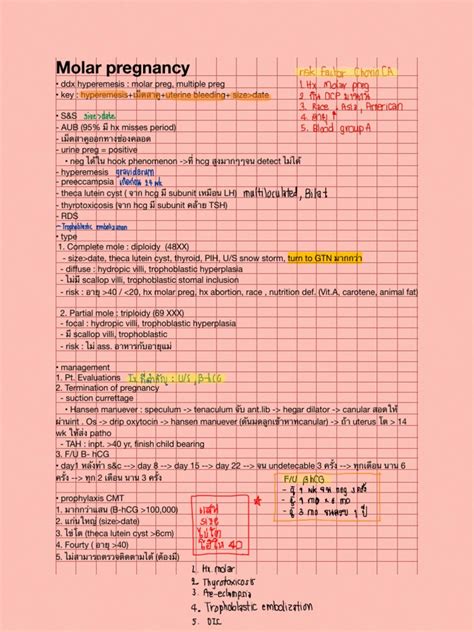 Molar pregnancy
• ddx hyperemesis : molar preg, multiple preg
• key : hyperemesis+เม็ดสาคู+uterine bleeding+ size>date
risk Factor ChorioCA
1. Hx molar preg
2. กิน OCP มานาน
3. Race , Asia, American
4. อายุ
5. Blood group A
• S&S size>date
- AUB (95% มี hx misses period)
- เม็ดสาคูออกทางช่องคลอด
- urine preg = positive
• neg ได้ใน hook phenomenon ->ที่ hcg สูงมากๆจน detect ไม่ได้
- hyperemesis gravidarum
- preeccampsia
- theca lutein cyst ( จาก hcg มี subunit เหมือน LH) multiloculated, Bilat
- thyrotoxicosis (จาก hcg มี subunit คล้าย TSH)
- RDS
- Trophoblastic embolization
• type
1. Complete mole : diploidy (48XX)
- size>date, theca lutein cyst, thyroid, PIH, U/S snow storm, turn to GTN มากกว่า
- diffuse : hydropic villi, trophoblastic hyperplasia
- ไม่มี scallop villi, trophoblastic stomal inclusion
- risk : อายุ >40 / <20, hx molar preg, hx abortion, race , nutrition def. (Vit.A, carotene, animal fat)
2. Partial mole : triploidy (69 XXX)
- focal : hydropic villi, trophoblastic hyperplasia
- มี scallop villi, trophoblastic
- risk : ไม่ ass. อาหารกับอายุแม่
• management
1. Pt. Evaluations Ix ที่สำคัญ : U/S , B-hCG
2. Termination of pregnancy
- suction currettage
• Hansen manuever : speculum -> tenaculum จับ ant.lib -> hegar dilator -> canular สอดให้
ผ่านint . Os -> drip oxytocin -> hansen manuever (ดันมดลูกเข้าหาtcanular) -> ถ้า uterus โต > 14
wk ให้ส่ง patho
- TAH : inpt. >40 yr, finish child bearing
3. F/U B- hCG
• day1 หลังทำ s&c --> day 8 --> day 15 --> day 22 --> จน undetecable 3 ครั้ง --> ทุกเดือน นาน 6
ครั้ง --> ทุก 2 เดือน นาน 3 ครั้ง
F/U B-hCG
- ทุ 1 wk จน neg 3 ครั้ง
- ทุ 1 mo x 6 mo
- ทุ 3 mo จนครบ 1 ปี
• prophylaxis CMT
1. มากกว่าแสน (B-hCG >100,000)
2. แก่นใหญ่ (size>date)
3. ไข่โต (theca lutein cyst >6cm)
4. Fourty ( อายุ >40)
5. ไม่สามารถตรวจติดตามได้ (ต้องมี)
แสน
ไข่โต
1. Hx molar
2. Thyrotoxicosis
3. Pre-eclampsia
4. Trophoblastic embolization
5. DIC